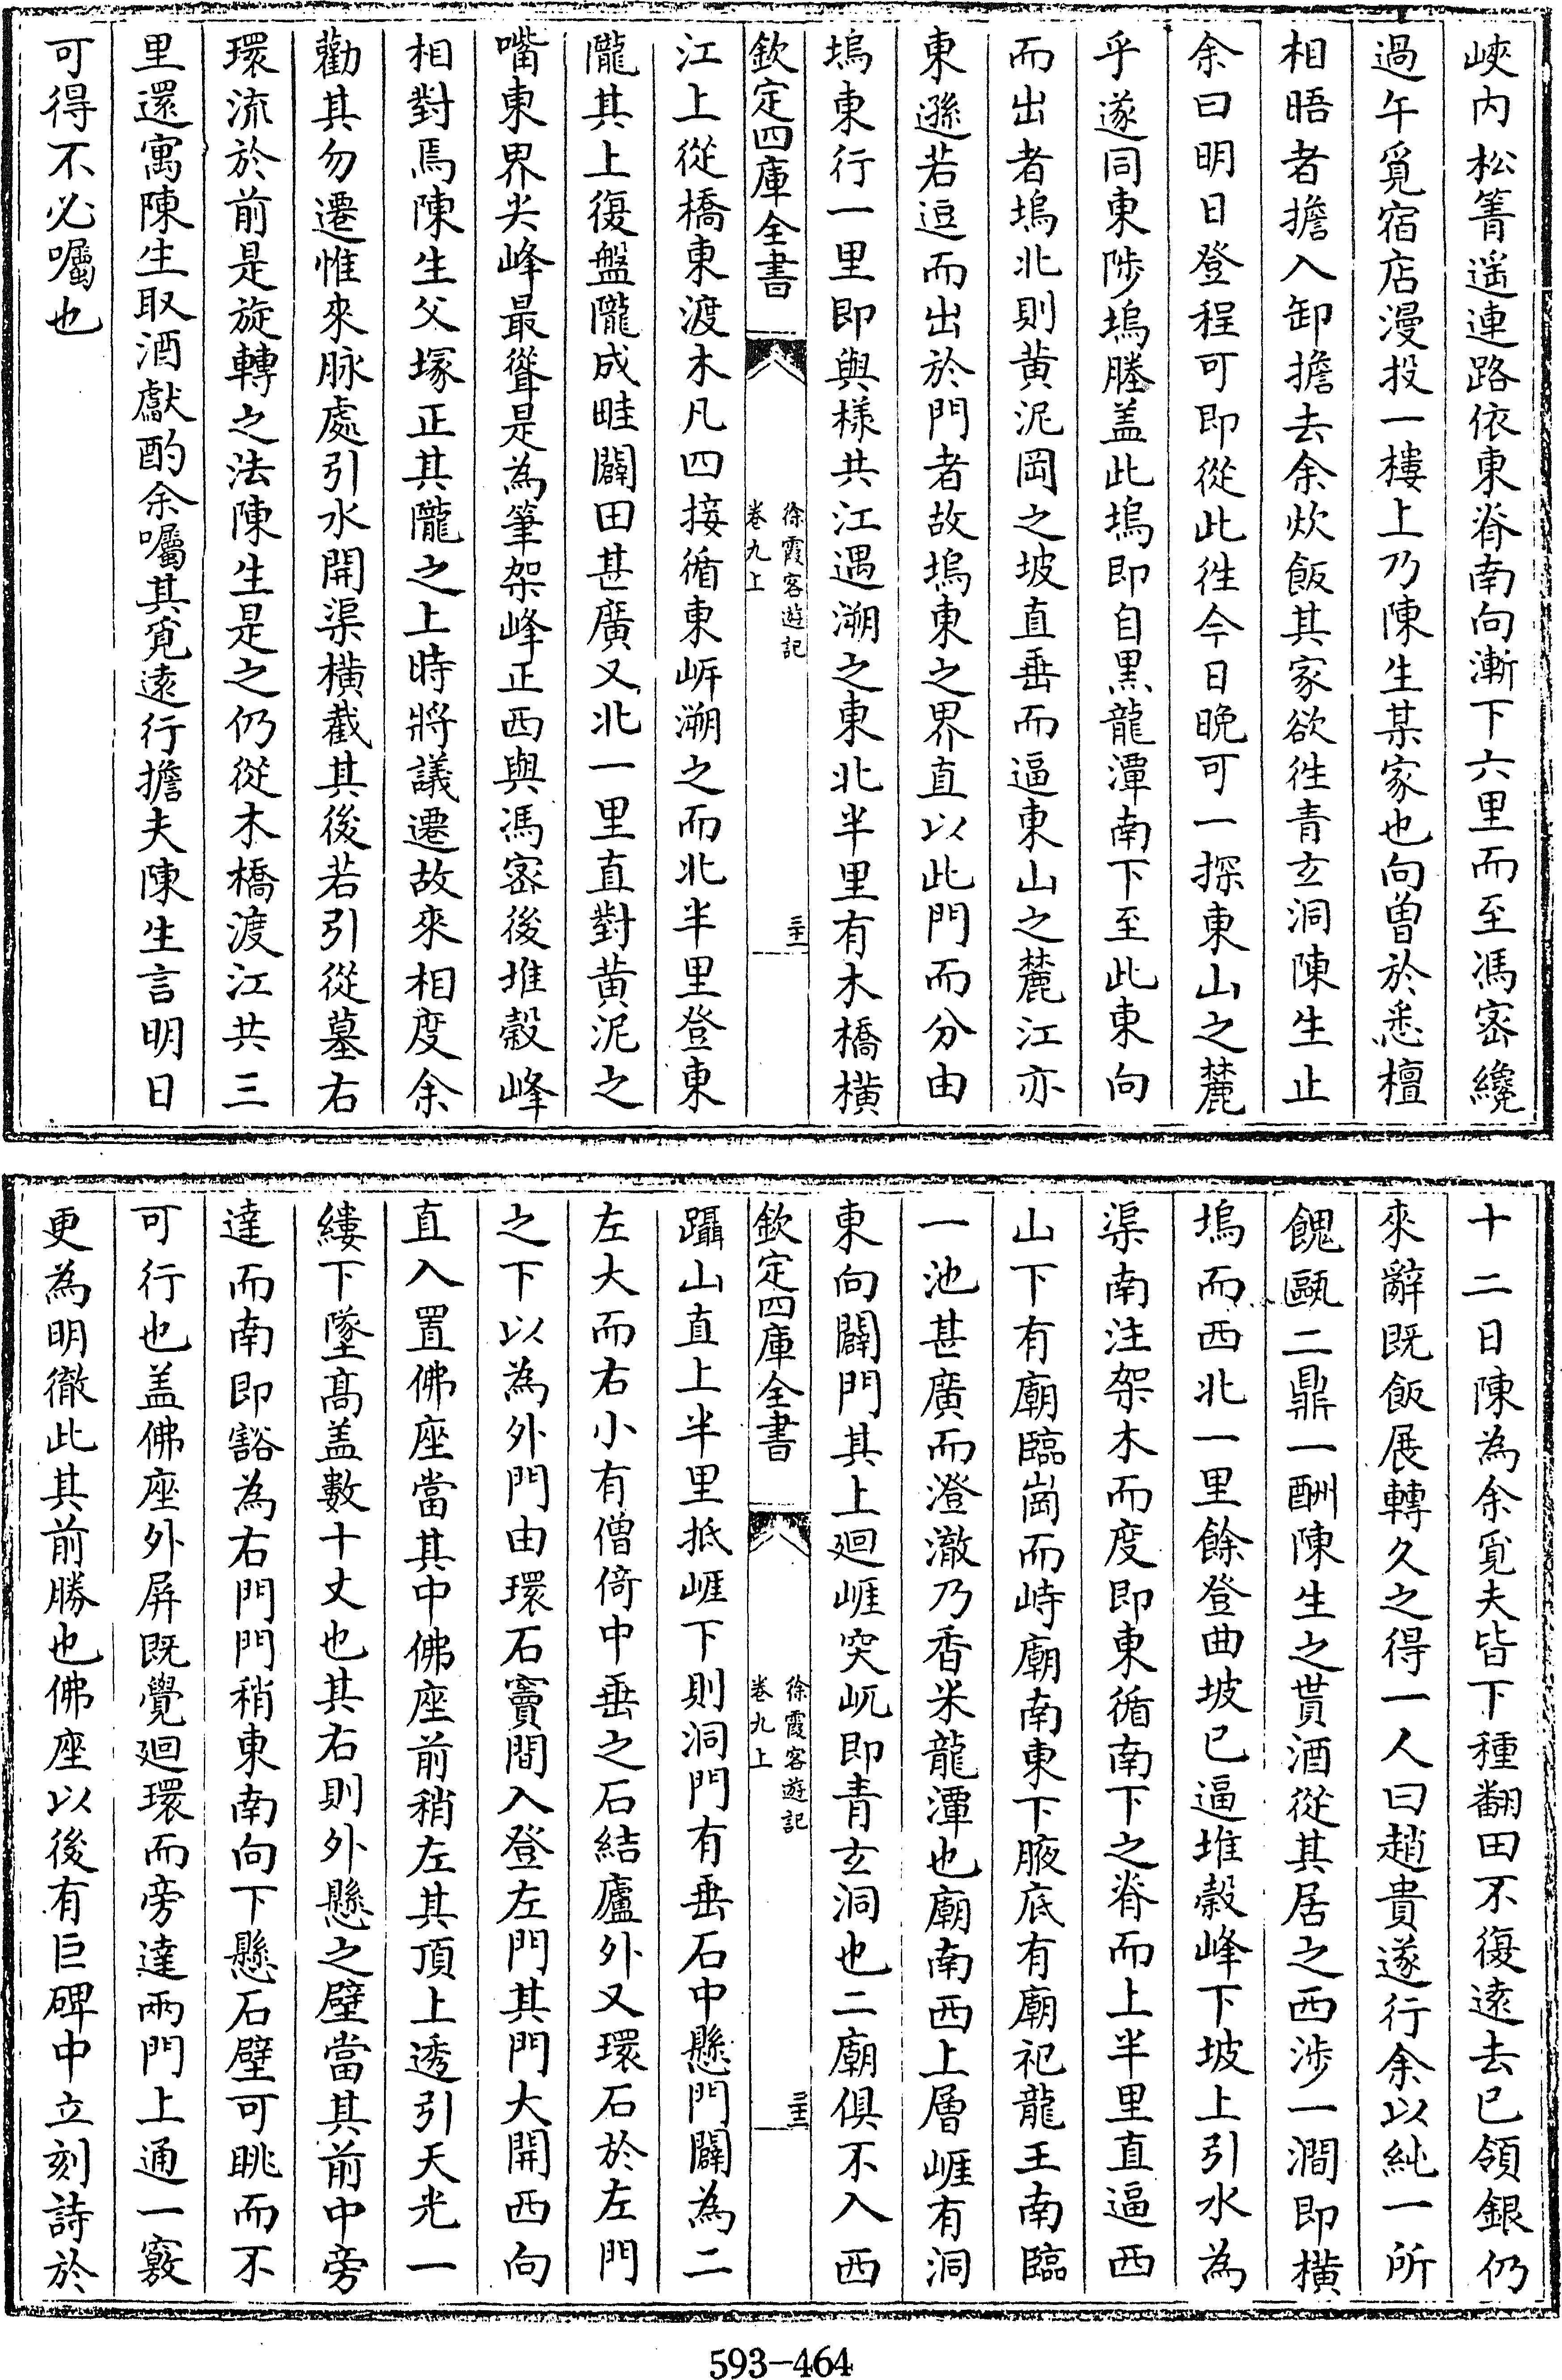 峽内松箐遥連路依東脊南向漸下六里而至馮密纔
過午覓宿店漫投一樓上乃陳生某家也向曽於悉檀
相晤者擔入卸擔去余炊飯其家欲徃青玄洞陳生止
余曰明日登程可即從此徃今日晚可一探東山之麓
乎遂同東陟塢塍盖此塢即自黒龍潭南下至此東向
而出者塢北則黄泥岡之坡直垂而逼東山之麓江亦
東遜若逗而出於門者故塢東之界直以此門而分由
塢東行一里即與様共江遇溯之東北半里有木橋横
欽定四庫全書
徐霞客遊記
卷九上
三十一
江上從橋東渡木凡四接循東㟁溯之而北半里登東
隴其上復盤隴成畦闢田甚廣又北一里直對黄泥之
嘴東界尖峰最聳是為筆架峰正西與馮密後堆糓峰
相對焉陳生父塚正其隴之上時將議遷故來相度余
勸其勿遷惟來脉處引水開渠横截其後若引從墓右
環流於前是旋轉之法陳生是之仍從木橋渡江共三
里還寓陳生取酒獻酌余囑其覓遠行擔夫陳生言明日
可得不必囑也
十二日陳為余覓夫皆下種翻田不復逺去已領銀仍
來辭既飯展轉久之得一人曰趙貴遂行余以純一所
餽甌二鼎一酬陳生之貰酒從其居之西涉一澗即横
塢而西北一里餘登曲坡已逼堆糓峰下坡上引水為
渠南注架木而度即東循南下之脊而上半里直逼西
山下有廟臨崗而峙廟南東下腋底有廟祀龍王南臨
一池甚廣而澄澈乃香米龍潭也廟南西上層崕有洞
東向闢門其上廻崕突屼即青玄洞也二廟俱不入西
欽定四庫全書
徐霞客遊記
卷九上
三十二
躡山直上半里抵崕下則洞門有垂石中懸門闢為二
左大而右小有僧倚中垂之石結廬外又環石於左門
之下以為外門由環石竇間入登左門其門大開西向
直入置佛座當其中佛座前稍左其頂上透引天光一
縷下墜高盖數十丈也其右則外懸之壁當其前中旁
達而南即豁為右門門稍東南向下懸石壁可眺而不
可行也盖佛座外屏既覺廻環而旁達兩門上通一竅
更為明徹此其前勝也佛座以後有巨碑中立刻詩於
593-464